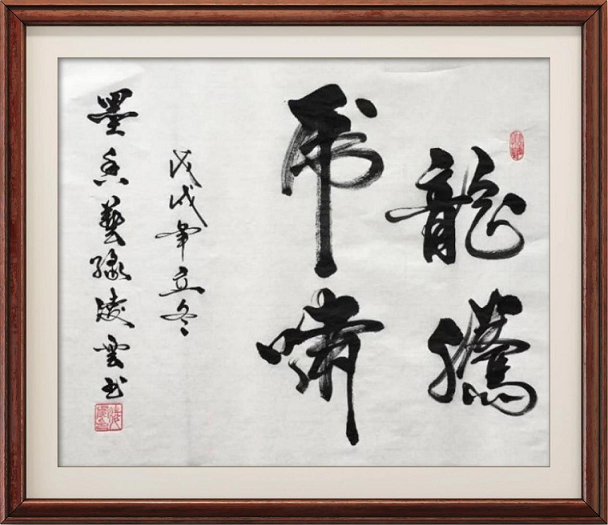 龍騰
虎嘯
戊戌年立冬
墨香藝緣凌雲书